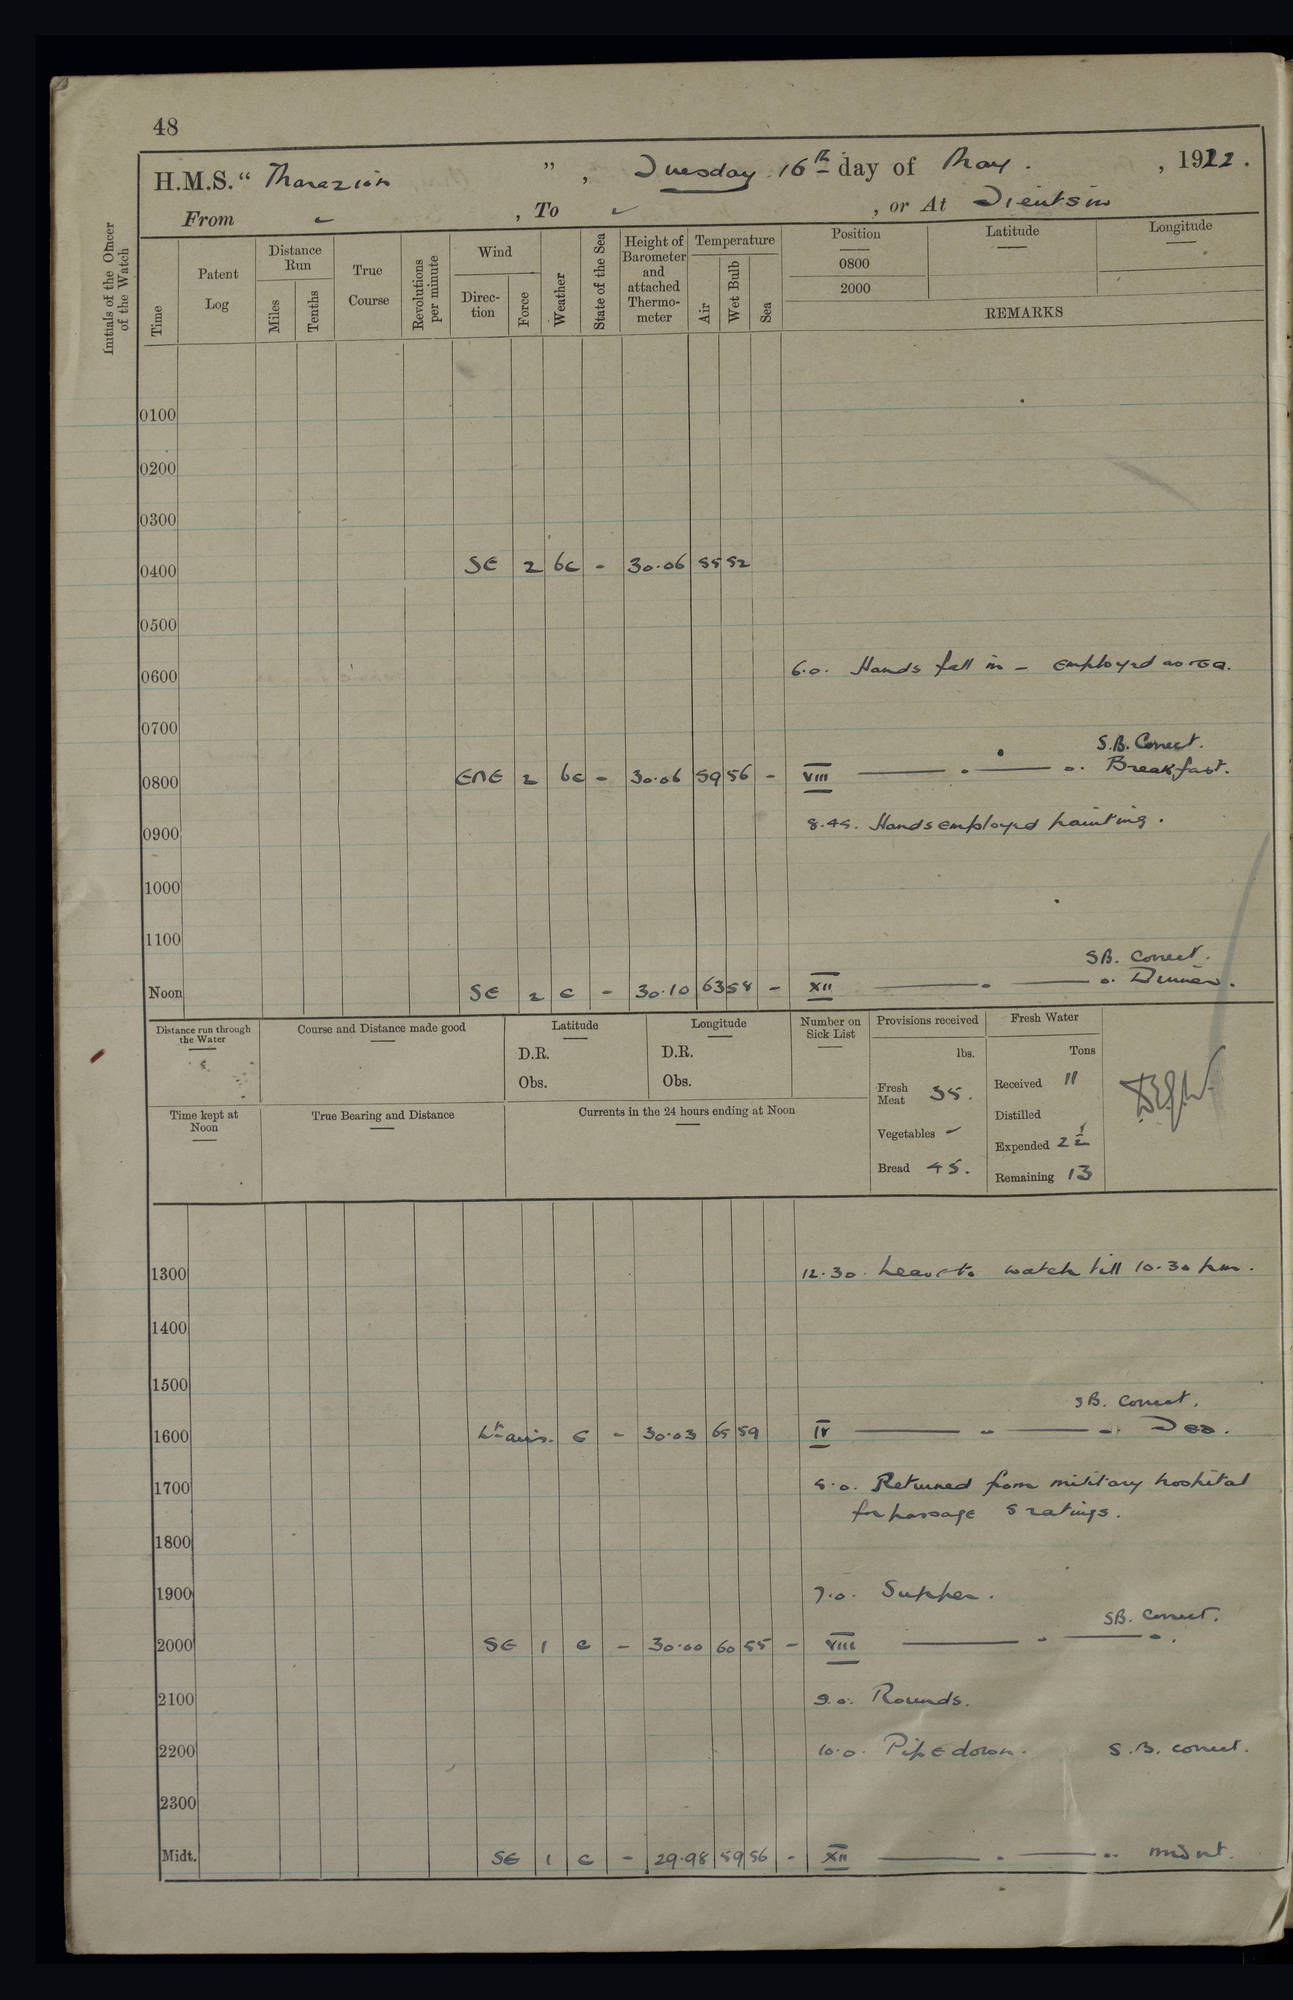 48
H.M.S. " Marazion " , Tuesday 16th day of May. , 1922.
From ✓ , To ✓ , or At Tientsin
Initials of the Officer of the Watch
Time
Patent Log
Distance Run
Miles
Tenths
True Course
Revolutions per minute
Wind
Direc-tion
Force
Weather
State of the Sea
Height of Barometer and attached Thermo-meter
Temperature
Air
Wet Bulb
Sea
Position
0800
2000
Latitude
Longitude
REMARKS
0100
0200
0300
0400 SE 2 bc - 30.06 55 52
0500
0600 6.0. Hands fall in - employed as req.
0700
S.B. Correct.
0800 ENE 2 bc - 30.06 59 56 - VIII Breakfast.
0900 8.45. Hands employed painting.
1000
1100
SB. Correct.
Noon SE 2 c - 30.10 63 58 - XII Dinner.
Distance run through the Water
Course and Distance made good
Latitude
D.R.
Obs.
Longitude
D.R.
Obs.
Number on Sick List
Provisions received
lbs.
Fresh Meat 35.
Vegetables ✓
Bread 45.
Fresh Water
Tons
Received 11
Distilled
Expended 2 1/2
Remaining 13
Time kept at Noon
True Bearing and Distance
Currents in the 24 hours ending at Noon
1300 12.30. Leave to watch till 10.30 pm.
1400
1500
SB. Correct.
1600 Lt airs. c - 30.03 65 59 IV Tea.
1700 5.0. Returned from military hospital
for passage 5 ratings.
1800
1900 7.0. Supper.
SB. Correct.
2000 SE 1 c - 30.00 60 55 - VIII
2100 9.0. Rounds.
2200 10.0. Pipe down. S.B. correct.
2300
Midt. SE 1 c - 29.98 59 56 - XII midnt.